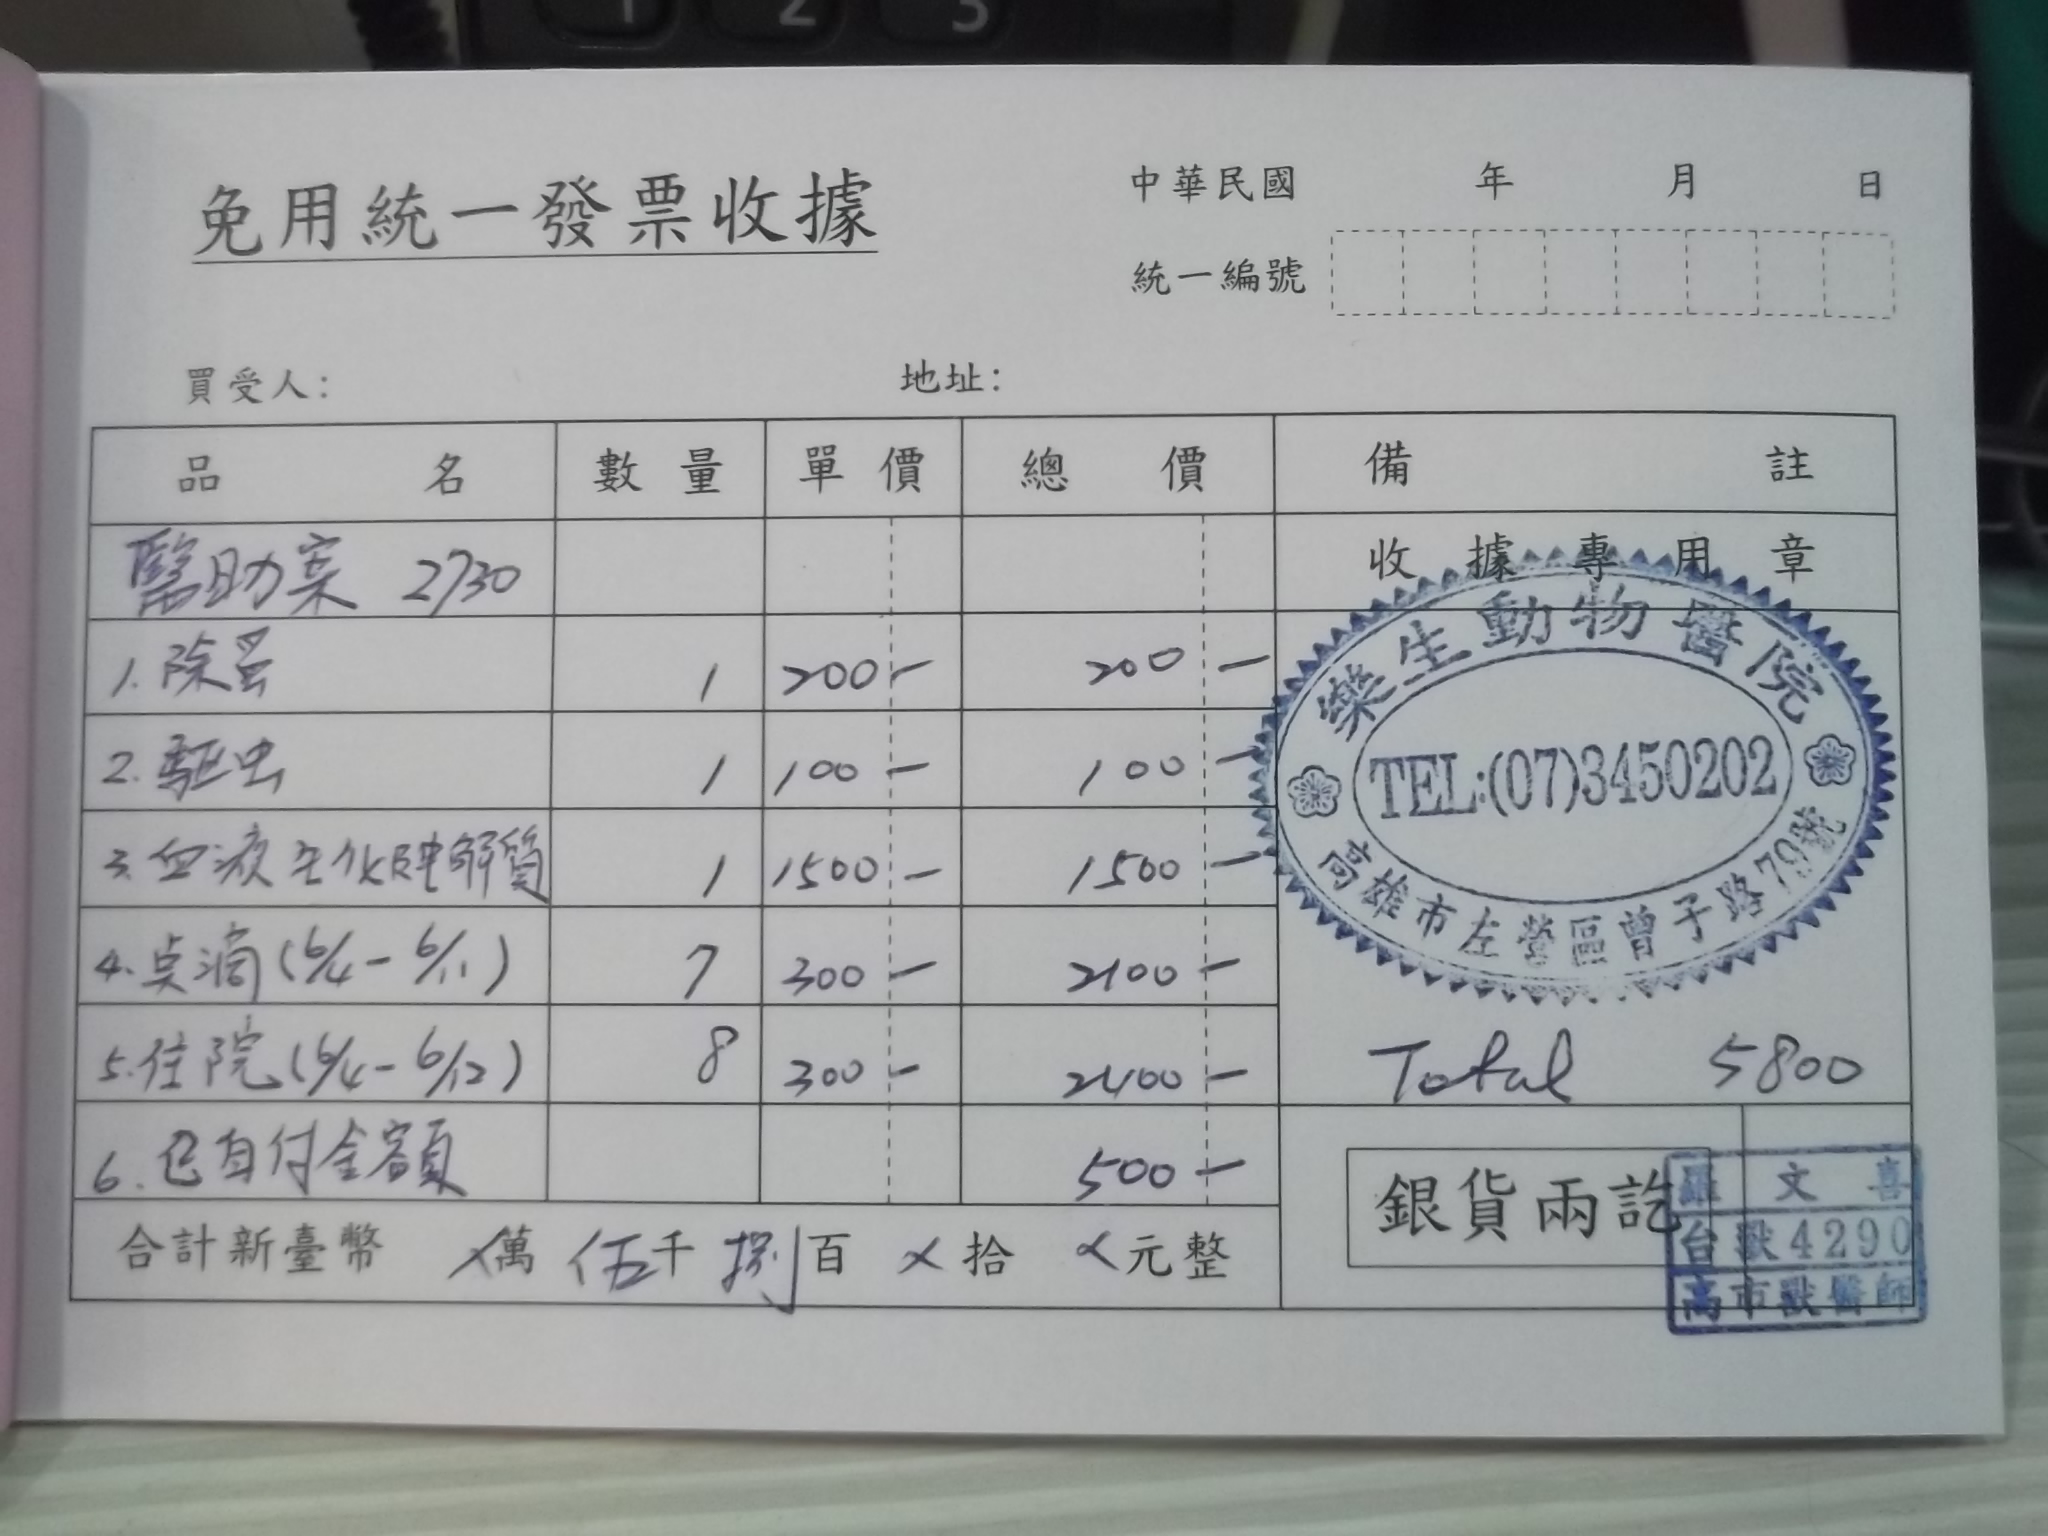 1 2 3
免用統一發票收據
中華民國 年 月 日
統一編號
買受人：
地址：
品名 數量 單價 總價 備註
醫助案 2730
收據專用章
1. 除蚤 1 200- 200-
2. 駆虫 1 100- 100-
3. 血液生化电解質 1 1500- 1500-
4. 点滴 (6/4-6/11) 7 300- 2100-
5. 住院 (6/4-6/12) 8 300- 2400-
6. 已自付金額 500-
樂生動物醫院
TEL:(07)3450202
高雄市左營區曾子路79號
Total 5800
合計新臺幣 ㄨ萬 伍千 捌百 ㄨ拾 ㄨ元整
銀貨兩訖
羅文喜
台獸4290
高市獸醫師